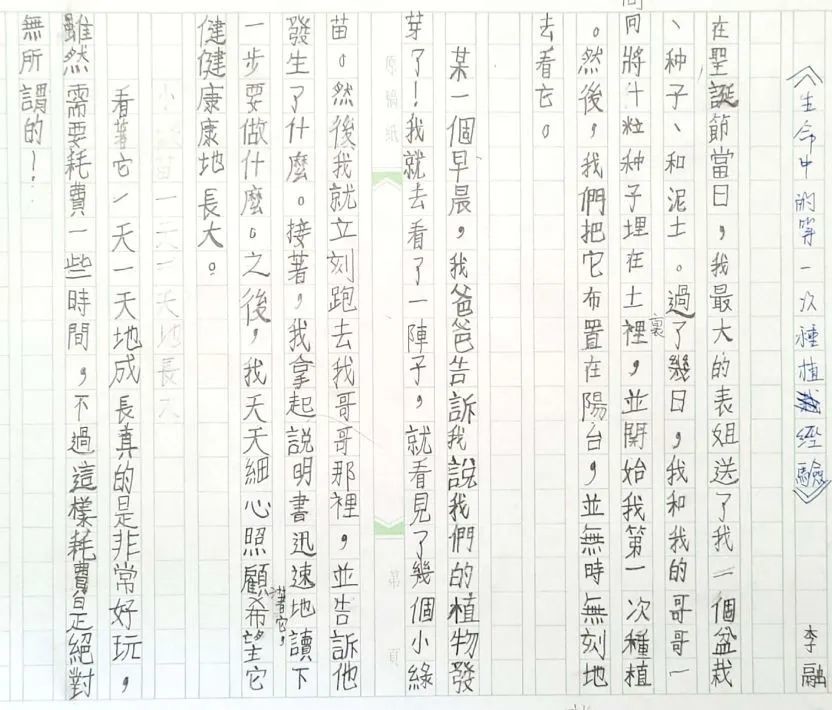 《生命中的第一次種植經驗》
李融
在聖誕節當日,我最大的表姐送了我一個盆栽
、种子、和泥土。過了幾日,我和我的哥哥一
同將十粒种子埋在土裡,並開始我第一次種植
裏
。然後,我們把它布置在陽台,並無時無刻地
去看它。
某一個早晨,我爸爸告訴我說我們的植物發
芽了!我就去看了一陣子,就看見了幾個小綠
原稿紙
第 頁
苗。然後我就立刻跑去我哥哥那裡,並告訴他
發生了什麼。接著,我拿起說明書迅速地讀下
一步要做什麼。之後,我天天細心照顧著它,希望它
健健康康地長大。
苗一天一天地長大
看著它一天一天地成長真的是非常好玩,
雖然需要耗費一些時間,不過這樣耗費是絕對
無所謂的!